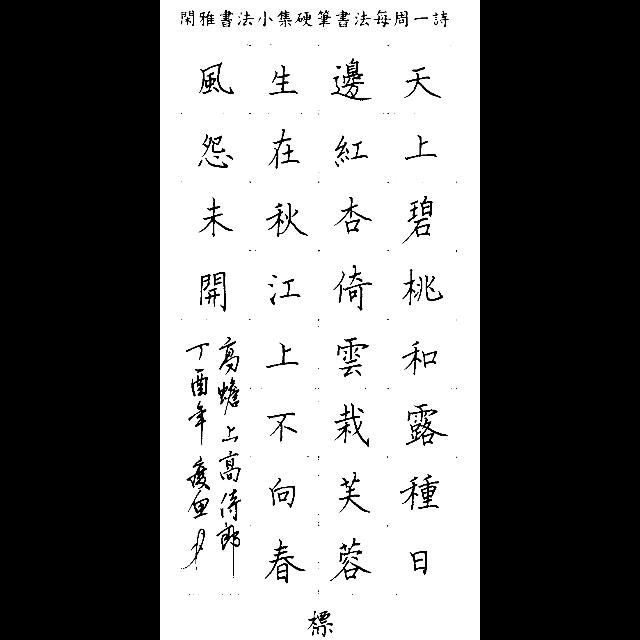 閑雅書法小集硬筆書法每周一詩
天上碧桃和露種日
邊紅杏倚雲栽芙蓉
生在秋江上不向春
風怨未開
高蟾上高侍郎
丁酉年
標